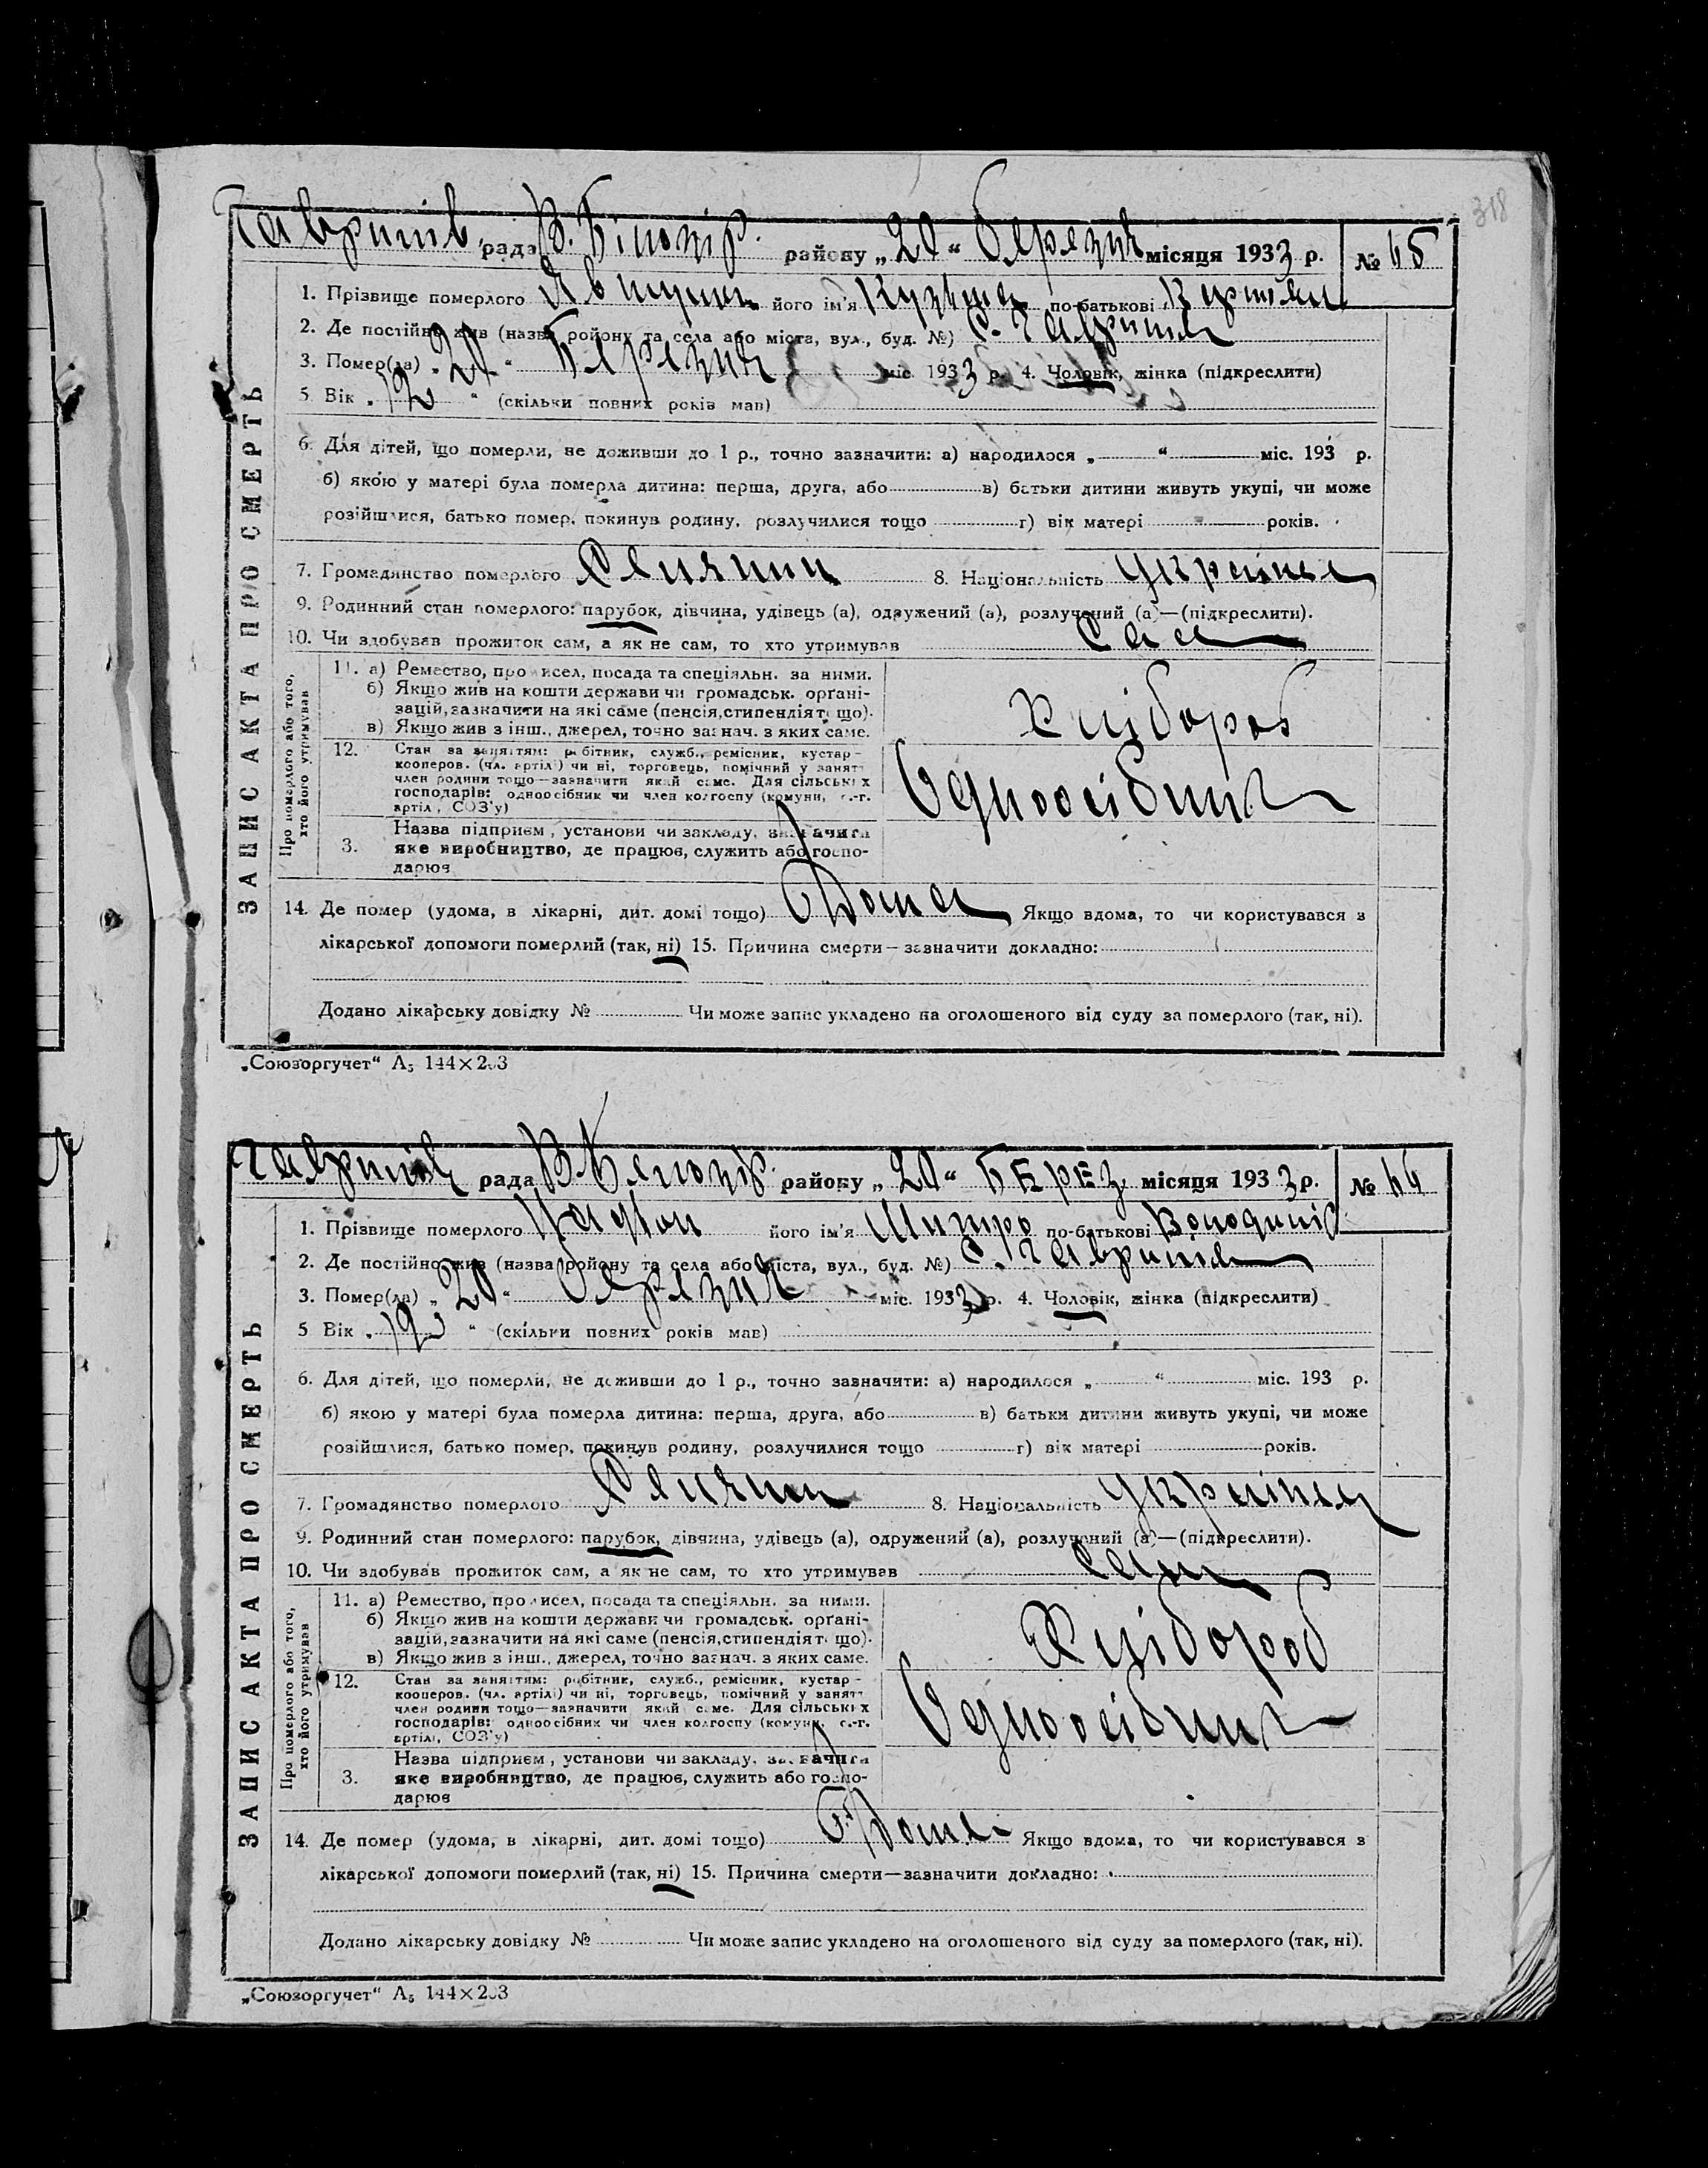 318
Гавришів. рада В. Білозір. району „20“ березня місяця 1933 р. № 45
1. Прізвище померлого його ім'я Кузьма по-батькові
2. Де постійно жив (назва району та села або міста, вул., буд. №) С. Гавриші
3. Помер(ла) „20“ Березня міс. 1933 р. 4. Чоловік, жінка (підкреслити)
5. Вік „ “ (скільки повних років мав)
6. Для дітей, що померли, не доживши до 1 р., точно зазначити: а) народилося „ “ міс. 193 р.
б) якою у матері була померла дитина: перша, друга, або в) батьки дитини живуть укупі, чи може
розійшлися, батько помер, покинув родину, розлучилися тощо г) вік матері років.
7. Громадянство померлого Селянин 8. Національність Українец
9. Родинний стан померлого: парубок, дівчина, удівець (а), одружений (а), розлучений (а)—(підкреслити).
10. Чи здобував прожиток сам, а як не сам, то хто утримував Сам
ЗАПИС АКТА ПРО СМЕРТЬ
Про померлого або того, хто його утримував
11. а) Ремество, промисел, посада та спеціяльн. за ними.
б) Якщо жив на кошти держави чи громадськ. орґані-
зацій, зазначити на які саме (пенсія, стипендія т. що).
в) Якщо жив з інш., джерел, точно зазнач. з яких саме.
Хлібороб
12. Стан за заняттям: робітник, служб., ремісник, кустар-
кооперов. (чл. артілі) чи ні, торговець, помічний у занят.
член родини тощо—зазначити який саме. Для сільських
господарів: одноосібник чи член колгоспу (комуни, с.-г.
артіл., СОЗ'у)
Одноосібник
3. Назва підприєм., установи чи закладу, зазначити
яке виробництво, де працює, служить або госпо-
дарює
14. Де помер (удома, в лікарні, дит. домі тощо) Дома Якщо вдома, то чи користувався з
лікарської допомоги померлий (так, ні) 15. Причина смерти—зазначити докладно:
Додано лікарську довідку № Чи може запис укладено на оголошеного від суду за померлого (так, ні).
„Союзоргучет“ А5 144×203
Гавришів рада В. Білозір. району „20“ БЕРЕЗ. місяця 1933 р. № 46
1. Прізвище померлого його ім'я Митро по-батькові Володимір
2. Де постійно жив (назва району та села або міста, вул., буд. №) С. Гавриші
3. Помер(ла) „20“ березня міс. 1933 р. 4. Чоловік, жінка (підкреслити)
5 Вік „ “ (скільки повних років мав)
6. Для дітей, що померли, не доживши до 1 р., точно зазначити: а) народилося „ “ міс. 193 р.
б) якою у матері була померла дитина: перша, друга, або в) батьки дитини живуть укупі, чи може
розійшлися, батько помер, покинув родину, розлучилися тощо г) вік матері років.
7. Громадянство померлого Селянин 8. Національність Українец
9. Родинний стан померлого: парубок, дівчина, удівець (а), одружений (а), розлучений (а)—(підкреслити).
10. Чи здобував прожиток сам, а як не сам, то хто утримував Сам
ЗАПИС АКТА ПРО СМЕРТЬ
Про померлого або того, хто його утримував
11. а) Ремество, промисел, посада та спеціяльн. за ними.
б) Якщо жив на кошти держави чи громадськ. орґані-
зацій, зазначити на які саме (пенсія, стипендія т. що).
в) Якщо жив з інш., джерел, точно зазнач. з яких саме.
Хлібороб
12. Стан за заняттям: робітник, служб., ремісник, кустар-
кооперов. (чл. артілі) чи ні, торговець, помічний у занят.
член родини тощо—зазначити який саме. Для сільських
господарів: одноосібник чи член колгоспу (комуни, с.-г.
артілі, СОЗ'у)
Одноосібник
3. Назва підприєм., установи чи закладу, зазначити
яке виробництво, де працює, служить або госпо-
дарює
14. Де помер (удома, в лікарні, дит. домі тощо) Дома Якщо вдома, то чи користувався з
лікарської допомоги померлий (так, ні) 15. Причина смерти—зазначити докладно:
Додано лікарську довідку № Чи може запис укладено на оголошеного від суду за померлого (так, ні).
„Союзоргучет“ А5 144×203